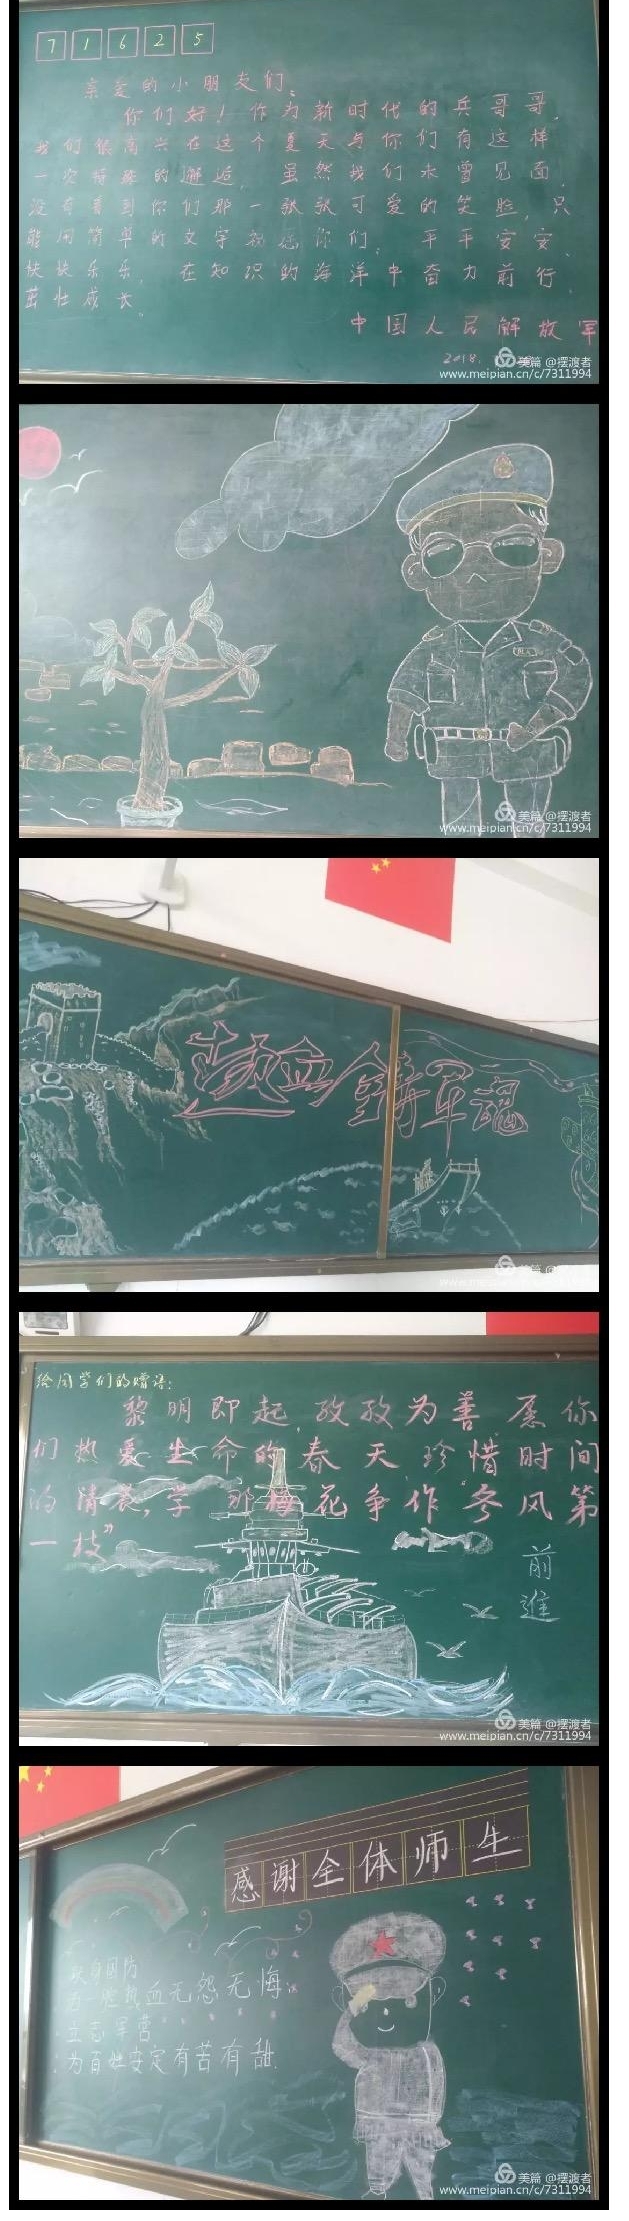 71625
亲爱的小朋友们:
你们好!作为新时代的兵哥哥,
我们很高兴在这个夏天与你们有这样
一次特殊的邂逅,虽然我们未曾见面,
没有看到你们那一张张可爱的笑脸,只
能用简单的文字祝愿你们:平平安安、
快快乐乐,在知识的海洋中奋力前行,
茁壮成长。
中国人民解放军
2018.
美篇 @摆渡者
www.meipian.cn/c/7311994
美篇 @摆渡者
www.meipian.cn/c/7311994
热血铸军魂
美篇 @摆渡者
www.meipian.cn/c/7311994
给同学们的赠语:
黎明即起,孜孜为善,愿你
们热爱生命的春天,珍惜时间
的清晨,学那梅花争作“冬风第
一枝”
前進
美篇 @摆渡者
www.meipian.cn/c/7311994
感谢全体师生
献身国防
为一腔热血无怨无悔
立志军营
为百姓安定有苦有甜.
美篇 @摆渡者
www.meipian.cn/c/7311994